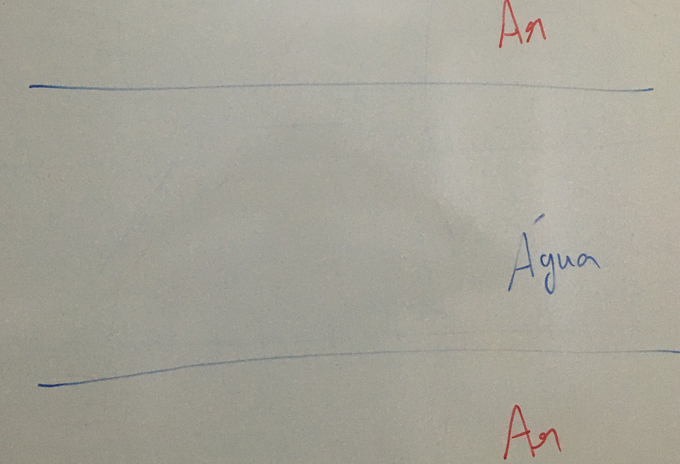 Ar
Água
Ar